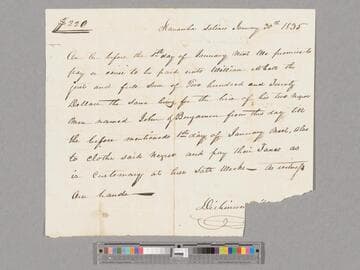 $220
Kanawha Salines January 20th 1835
On or before the 1st day of January next We promise to
pay or cause to be paid unto William the
just and full Sum of Two hundred and Twenty
Dollars the same being for the hire of his two Negro
Men named John & Benjamin from this day till
the before mentioned 1st day of January next, Also
to clothe said Negroes and pay their Taxes as
is Customary at these Salt Works — As witness
Our hands —
Dickinson